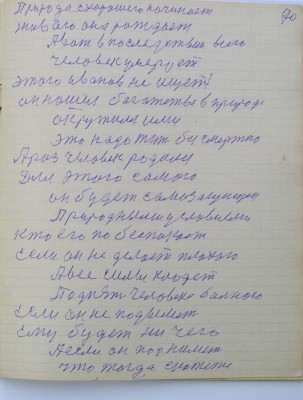 70
Природа с хорошего начинает
живого она рождает
А вот в последствии всего
человек умерает
Этого Иванов не ищет
он нашел богатства в природе
окружили ими
Это надо быть бы смертно
А раз человек родили
Для этого самого
он будет самозащитен
Природными условиями
Кто его побеспокоит
Если он не делает плохого
А все силы кладет
Поднять человека больного
Если он не поднимет
ему будет ни чего
А если он поднимет
что тогда скажете